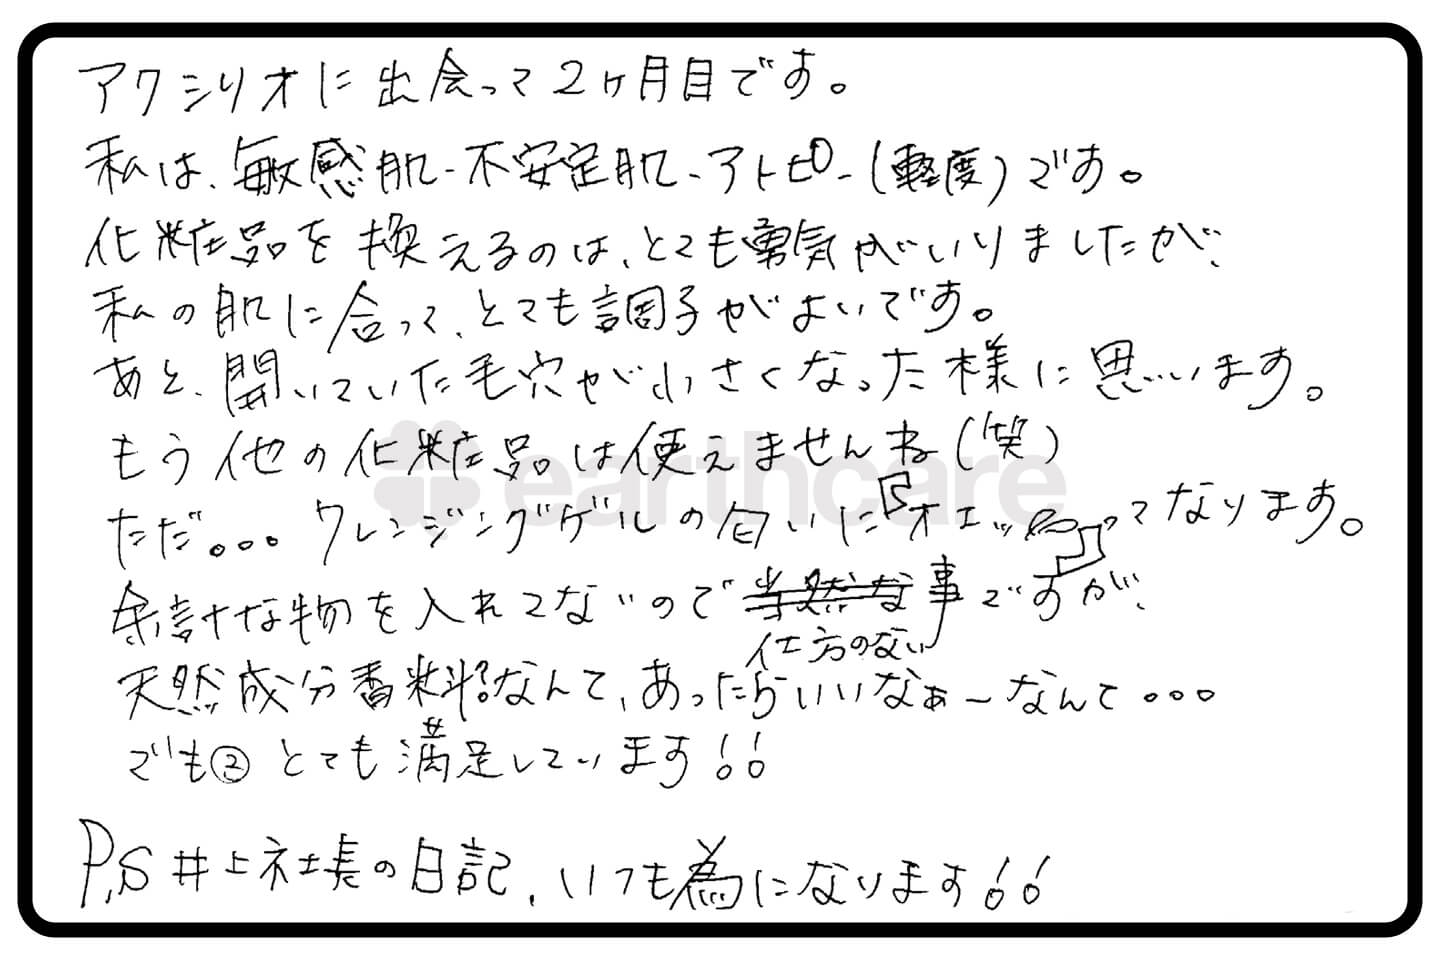 アクシリオに出会って2ヶ月目です。
私は、敏感肌-不安定肌-アトピー(軽度)です。
化粧品を換えるのは、とても勇気がいりましたが、
私の肌に合って、とても調子がよいです。
あと、開いていた毛穴が小さくなった様に思います。
もう他の化粧品は使えませんね(笑)
earthcare
ただ。。。クレンジングゲルの匂いに「オエッ」ってなります。
余計な物を入れてないので当然な事ですが、
仕方のない
天然成分香料?なんて、あったらいいなぁーなんて。。。
でも②とても満足しています!!
P,S 井上社長の日記、いつも為になります!!